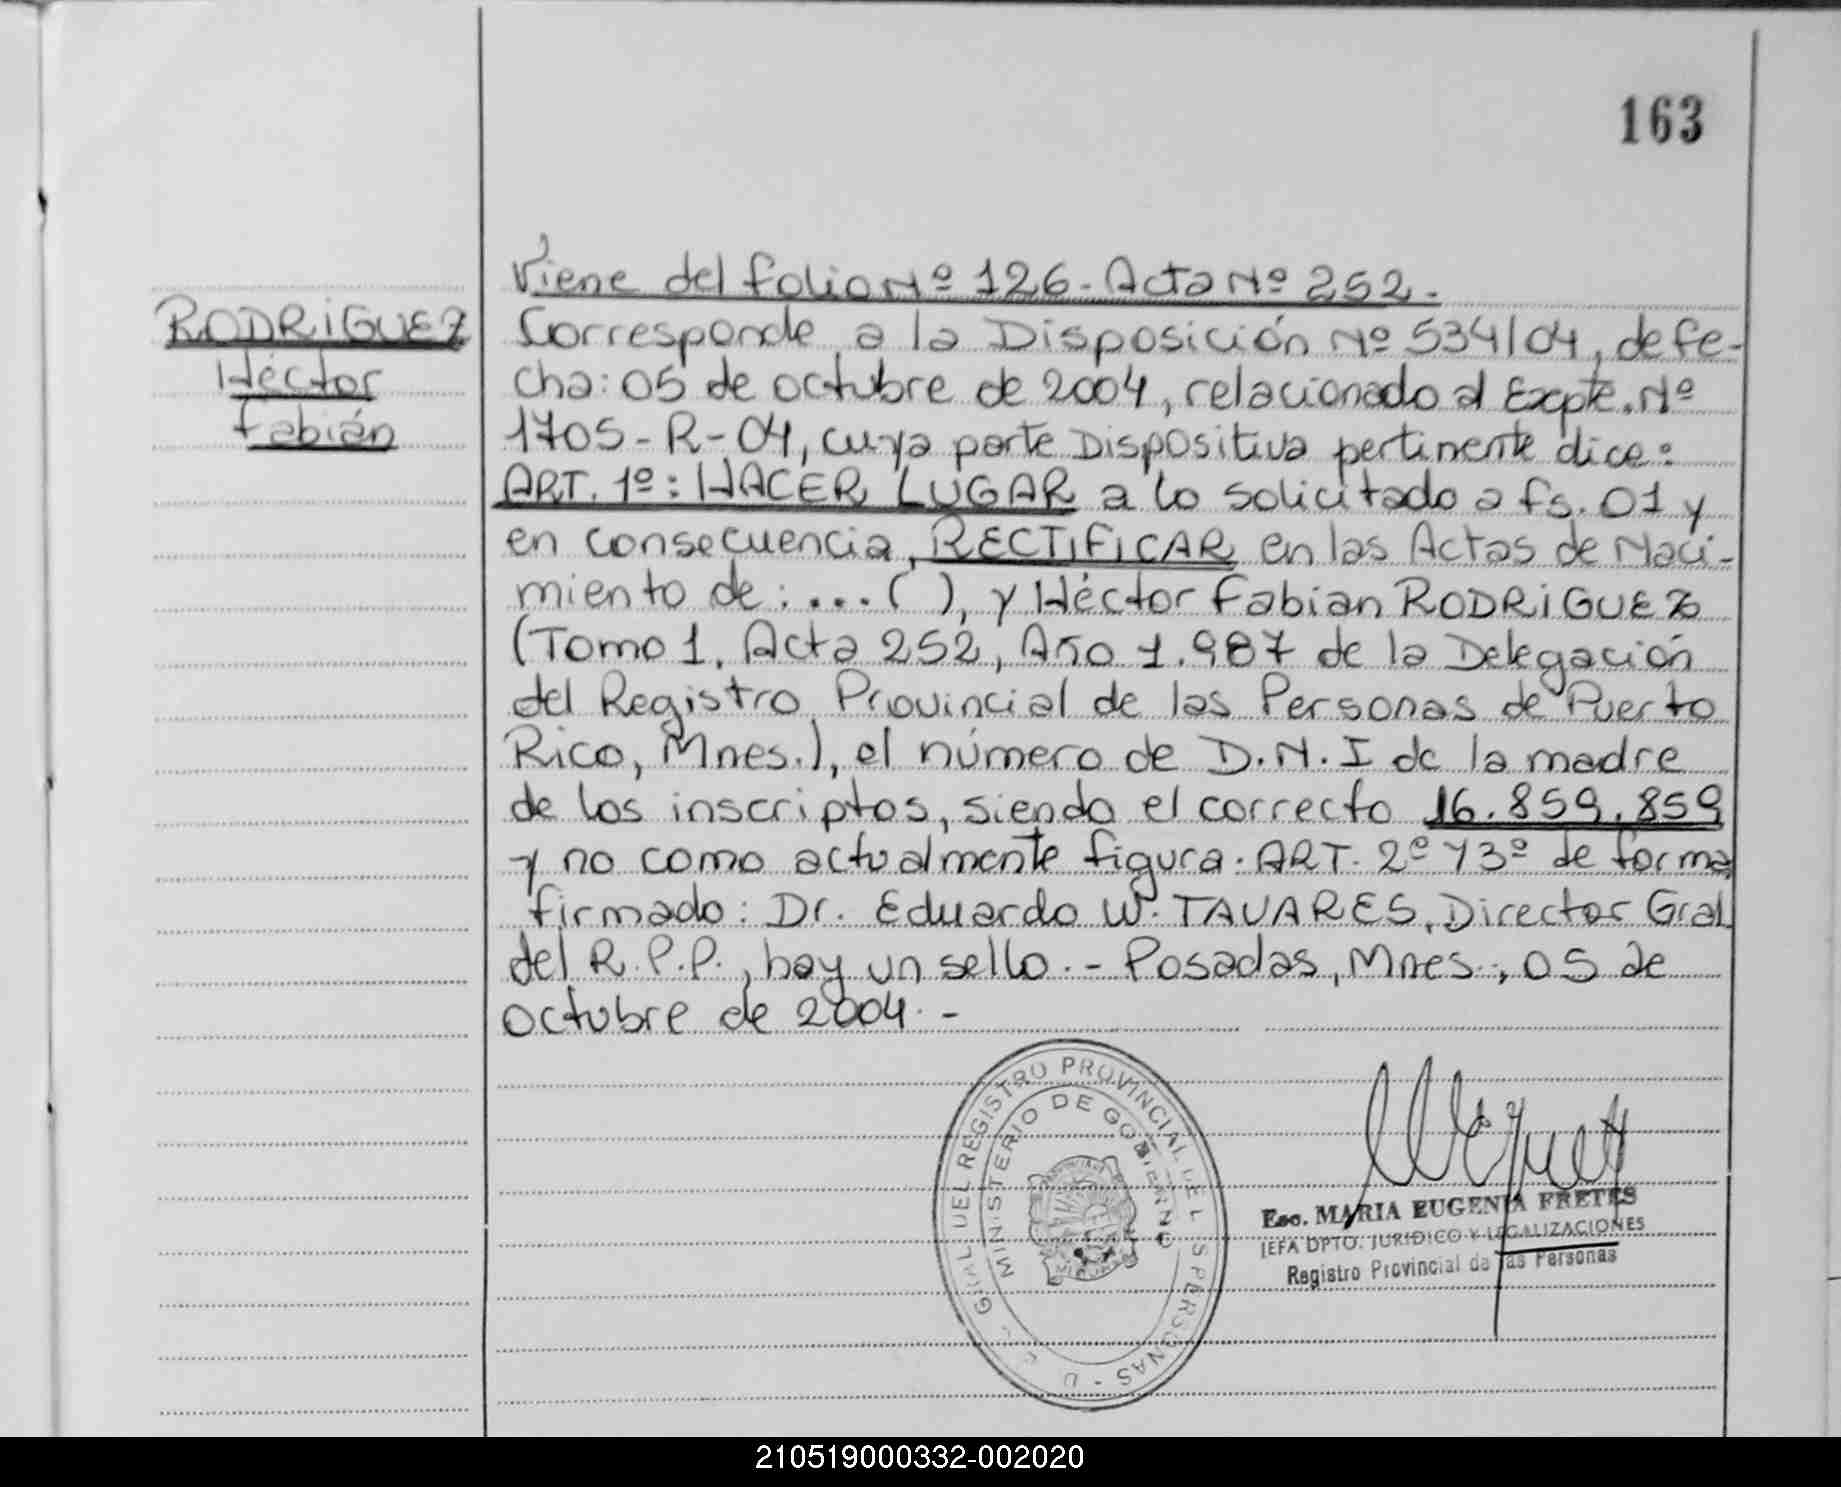 163
Viene del folio Nº 126 - Acta Nº 252.
RODRIGUEZ
Héctor
Fabián
Corresponde a la Disposición Nº 534/04, de fe-
cha: 05 de octubre de 2004, relacionado al Expte. Nº
1705-R-04, cuya parte Dispositiva pertinente dice:
ART. 1º: HACER LUGAR a lo solicitado a fs. 01 y
en consecuencia, RECTIFICAR en las Actas de Naci-
miento de: ...( ), y Héctor Fabian RODRIGUEZ
(Tomo 1, Acta 252, Año 1.987 de la Delegación
del Registro Provincial de las Personas de Puerto
Rico, Mnes.), el número de D.N.I de la madre
de los inscriptos, siendo el correcto 16.859.859
y no como actualmente figura. ART. 2º y 3º de forma
firmado: Dr. Eduardo W. TAVARES, Director Gral
del R.P.P., hay un sello.- Posadas, Mnes., 05 de
octubre de 2004.-
GRAL DEL REGISTRO PROVINCIAL DE LAS PERSONAS
MINISTERIO DE GOBIERNO
Esc. MARIA EUGENIA FRETES
JEFA DPTO. JURIDICO Y LEGALIZACIONES
Registro Provincial de las Personas
210519000332-002020